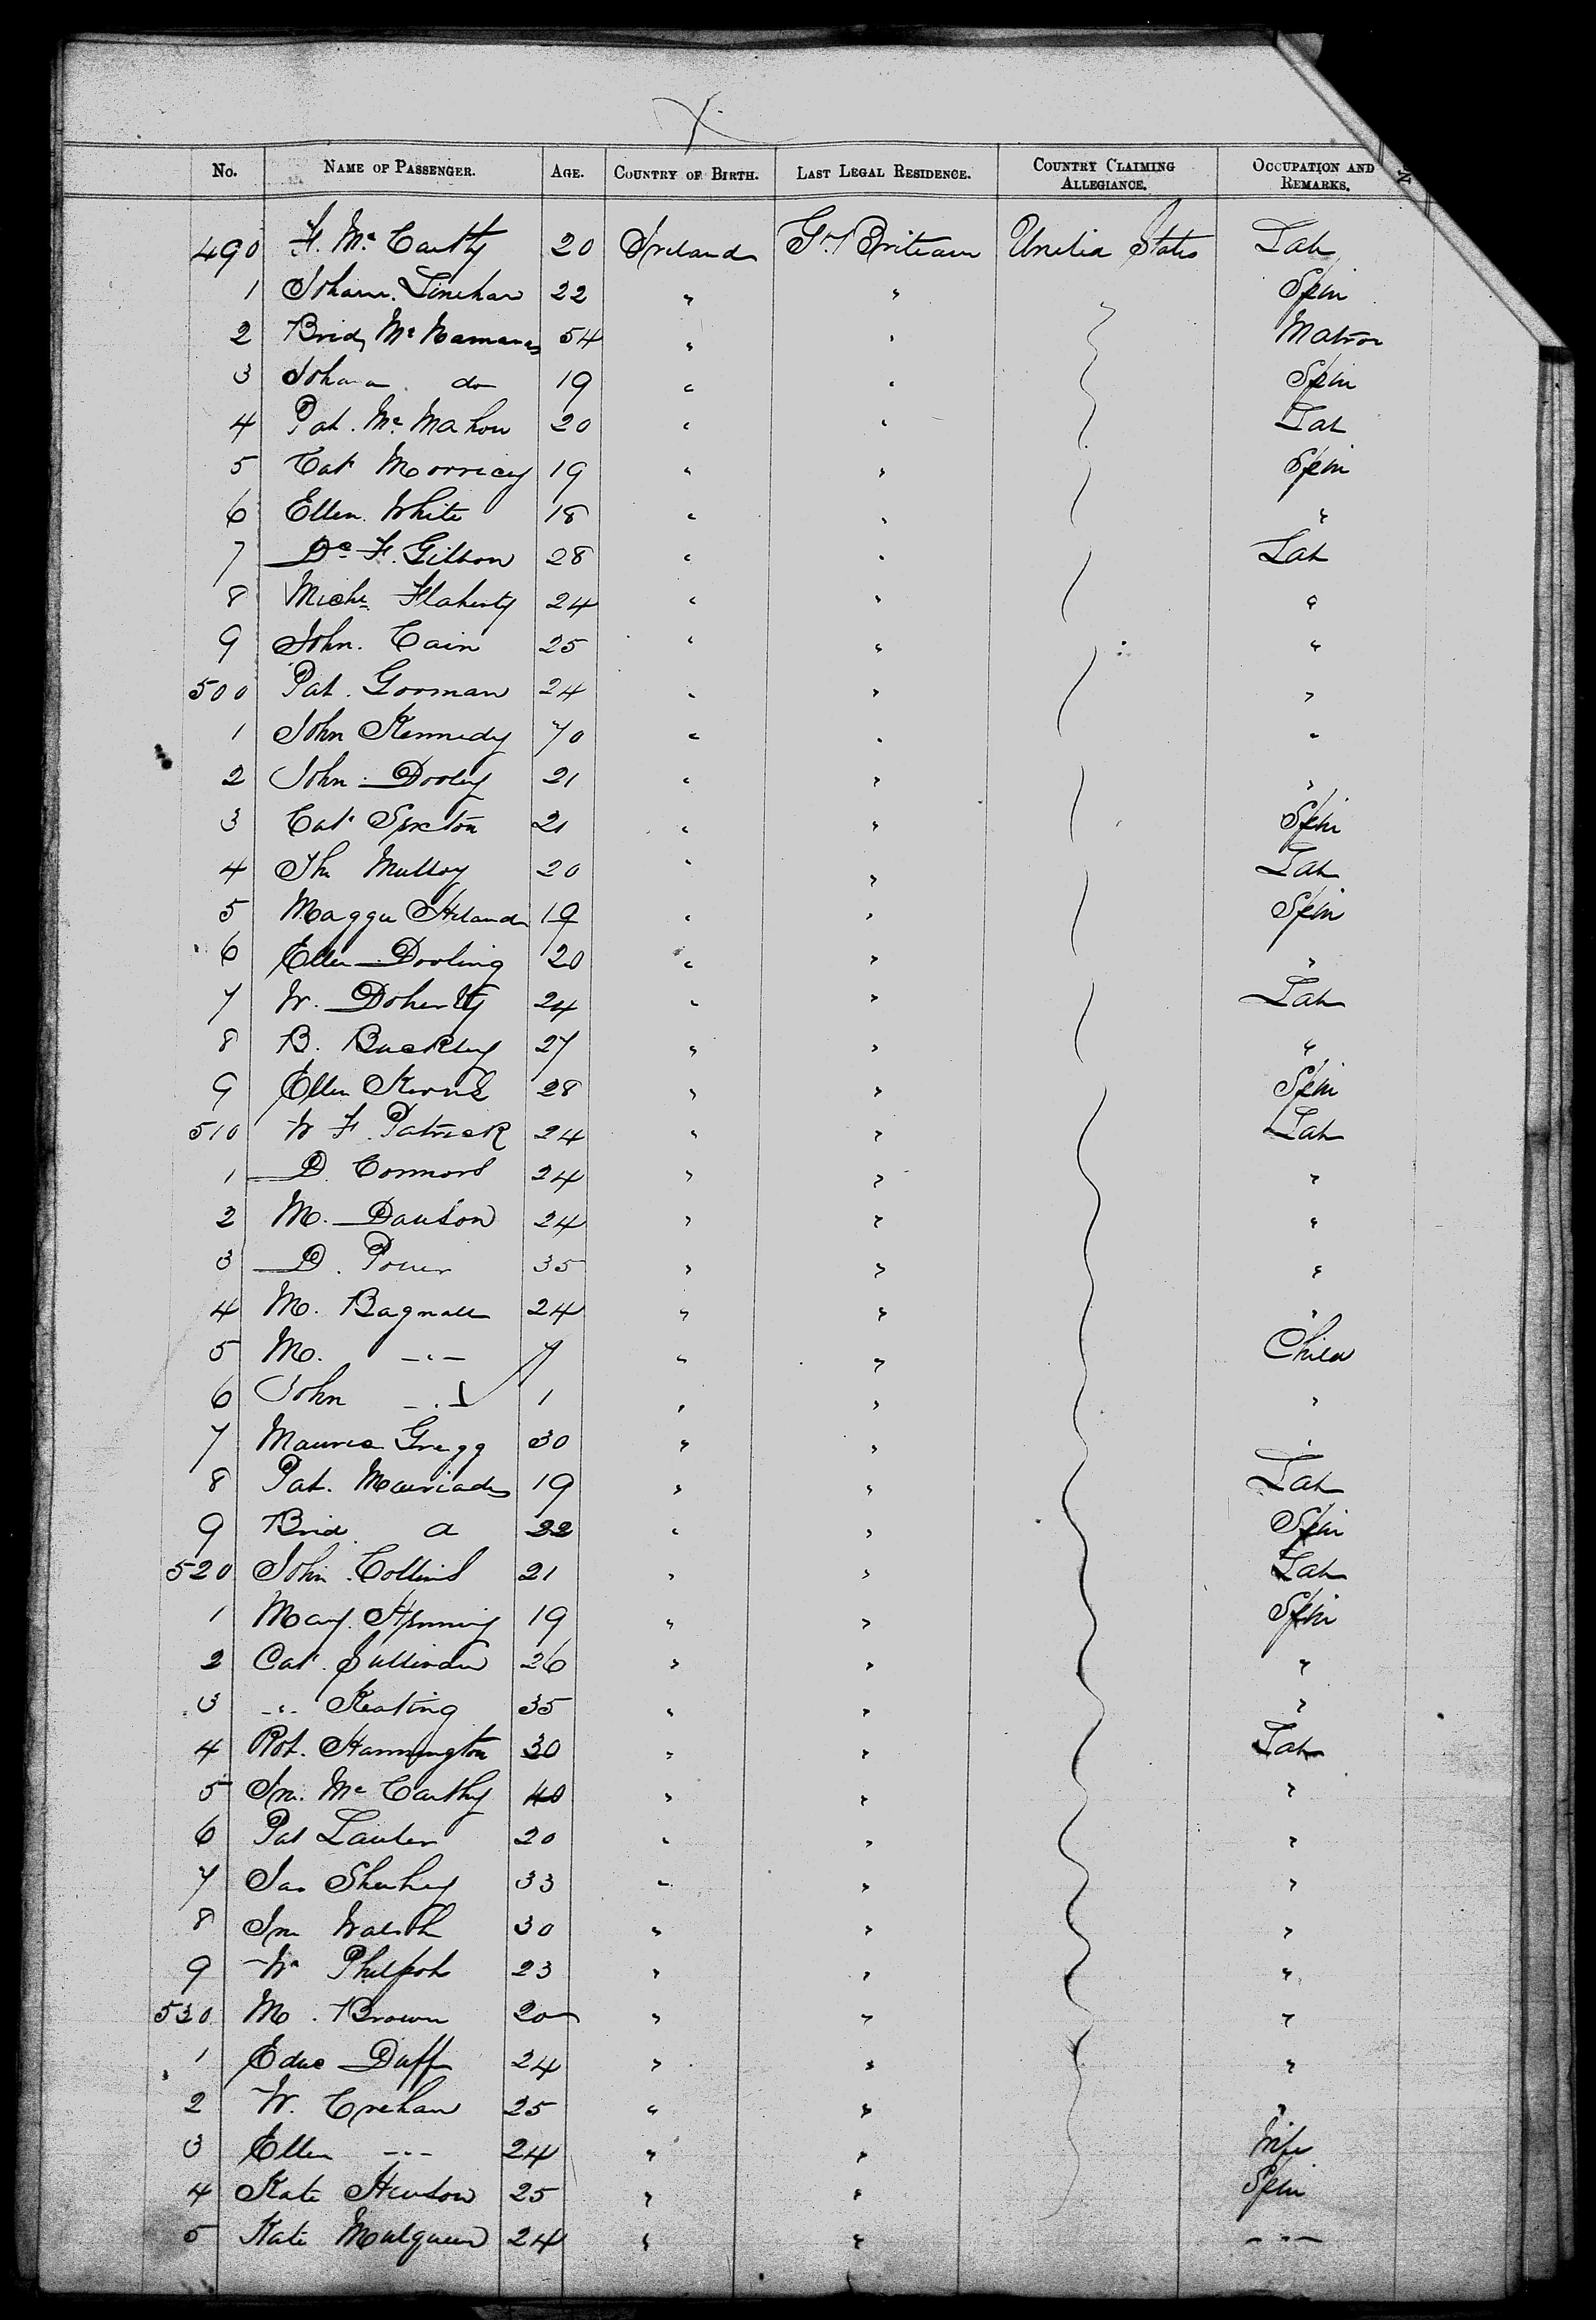 No. NAME OF PASSENGER. AGE. COUNTRY OF BIRTH. LAST LEGAL RESIDENCE. COUNTRY CLAIMING ALLEGIANCE. OCCUPATION AND REMARKS.
490 F. Mc Carthy 20 Ireland Gt Britain United States Lab
1 Johan. Linehan 22 " " Spin
2 Brid Mc Namara 54 " " Matron
3 Johana do 19 " " Spin
4 Pat. Mc Mahon 20 " " Lab
5 Cat Morricey 19 " " Spin
6 Ellen White 18 " " "
7 F. Gibbon 28 " " Lab
8 Michl Flaherty 24 " " "
9 John. Cain 25 " " "
500 Pat. Gorman 24 " " "
1 John Kennedy 70 " " "
2 John Dooley 21 " " "
3 Cat Sexton 21 " " Spin
4 Mulloy 20 " " Lab
5 Maggie 19 " " Spin
6 Ellen Dooling 20 " " "
7 W. Doherty 24 " " Lab
8 B. Buckley 27 " " "
9 Ellen 28 " " Spin
510 W F. Patrick 24 " " Lab
1 D. Connors 24 " " "
2 M. Dawson 24 " " "
3 D. Power 35 " " "
4 M. Bagnall 24 " " "
5 M. -"- 7 " " Child
6 John -"- 1 " " "
7 Maurice Gregg 30 " " "
8 Pat. 19 " " Lab
9 Brid 22 " " Spin
520 John Collins 21 " " Lab
1 Mary 19 " " Spin
2 Cat. Sullivan 26 " " "
3 -"- Keating 35 " " "
4 Rob. Hannington 30 " " Lab
5 Jn. Mc Carthy 40 " " "
6 Pat Lawler 20 " " "
7 Jas Sheehey 33 " " "
8 Jn Walsh 30 " " "
9 Wm Philpot 23 " " "
530 M. Brown 20 " " "
1 Duff 24 " " "
2 W. Crehan 25 " " "
3 Ellen -"- 24 " " Wife
4 Kate Hewson 25 " " Spin
5 Kate Mulqueen 24 " " -"-